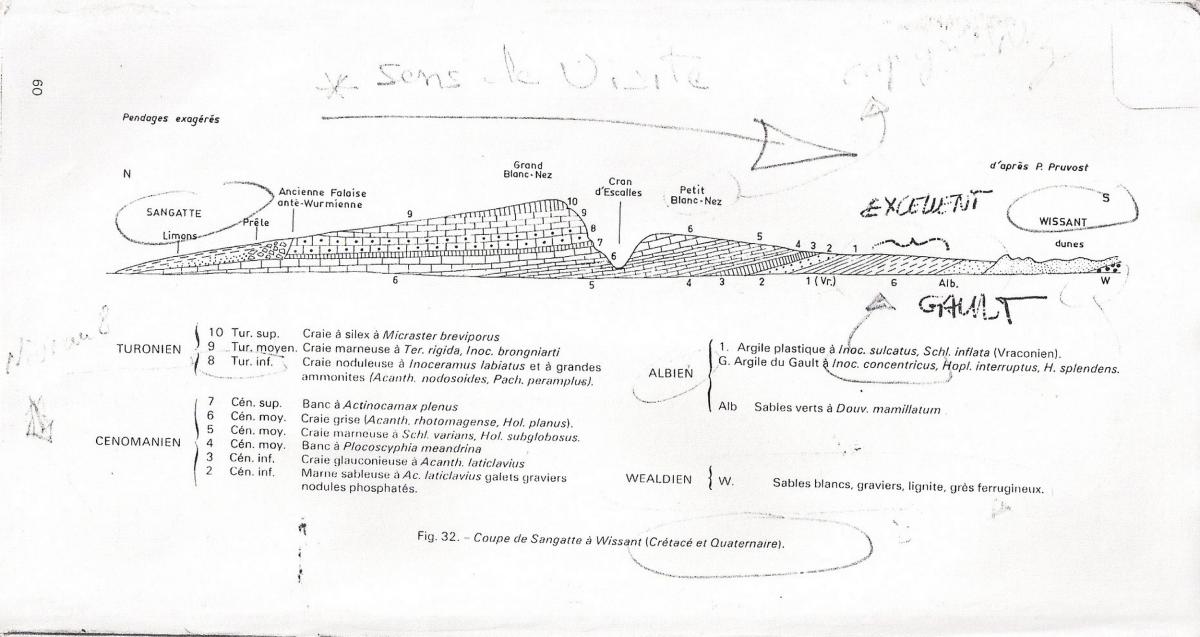 60
* Sens de Visite
Pendages exagérés
d'après P. Pruvost
N
S
SANGATTE
Limons
Prêle
Ancienne Falaise
antè-Wurmienne
Grand
Blanc-Nez
Cran
d'Escalles
Petit
Blanc-Nez
EXCELLENT
WISSANT
dunes
9 10 9 8 7 6 6 5 4 3 2 1
6 5 4 3 2 1 (Vr.) 6 Alb. W
GAULT
TURONIEN
10 Tur. sup. Craie à silex à Micraster breviporus
9 Tur. moyen. Craie marneuse à Ter. rigida, Inoc. brongniarti
8 Tur. inf. Craie noduleuse à Inoceramus labiatus et à grandes
ammonites (Acanth. nodosoides, Pach. peramplus).
CENOMANIEN
7 Cén. sup. Banc à Actinocamax plenus
6 Cén. moy. Craie grise (Acanth. rhotomagense, Hol. planus).
5 Cén. moy. Craie marneuse à Schl. varians, Hol. subglobosus.
4 Cén. moy. Banc à Plocoscyphia meandrina
3 Cén. inf. Craie glauconieuse à Acanth. laticlavius
2 Cén. inf. Marne sableuse à Ac. laticlavius galets graviers
nodules phosphatés.
ALBIEN
1. Argile plastique à Inoc. sulcatus, Schl. inflata (Vraconien).
G. Argile du Gault à Inoc. concentricus, Hopl. interruptus, H. splendens.
Alb Sables verts à Douv. mamillatum
WEALDIEN
W. Sables blancs, graviers, lignite, grès ferrugineux.
Fig. 32. – Coupe de Sangatte à Wissant (Crétacé et Quaternaire).